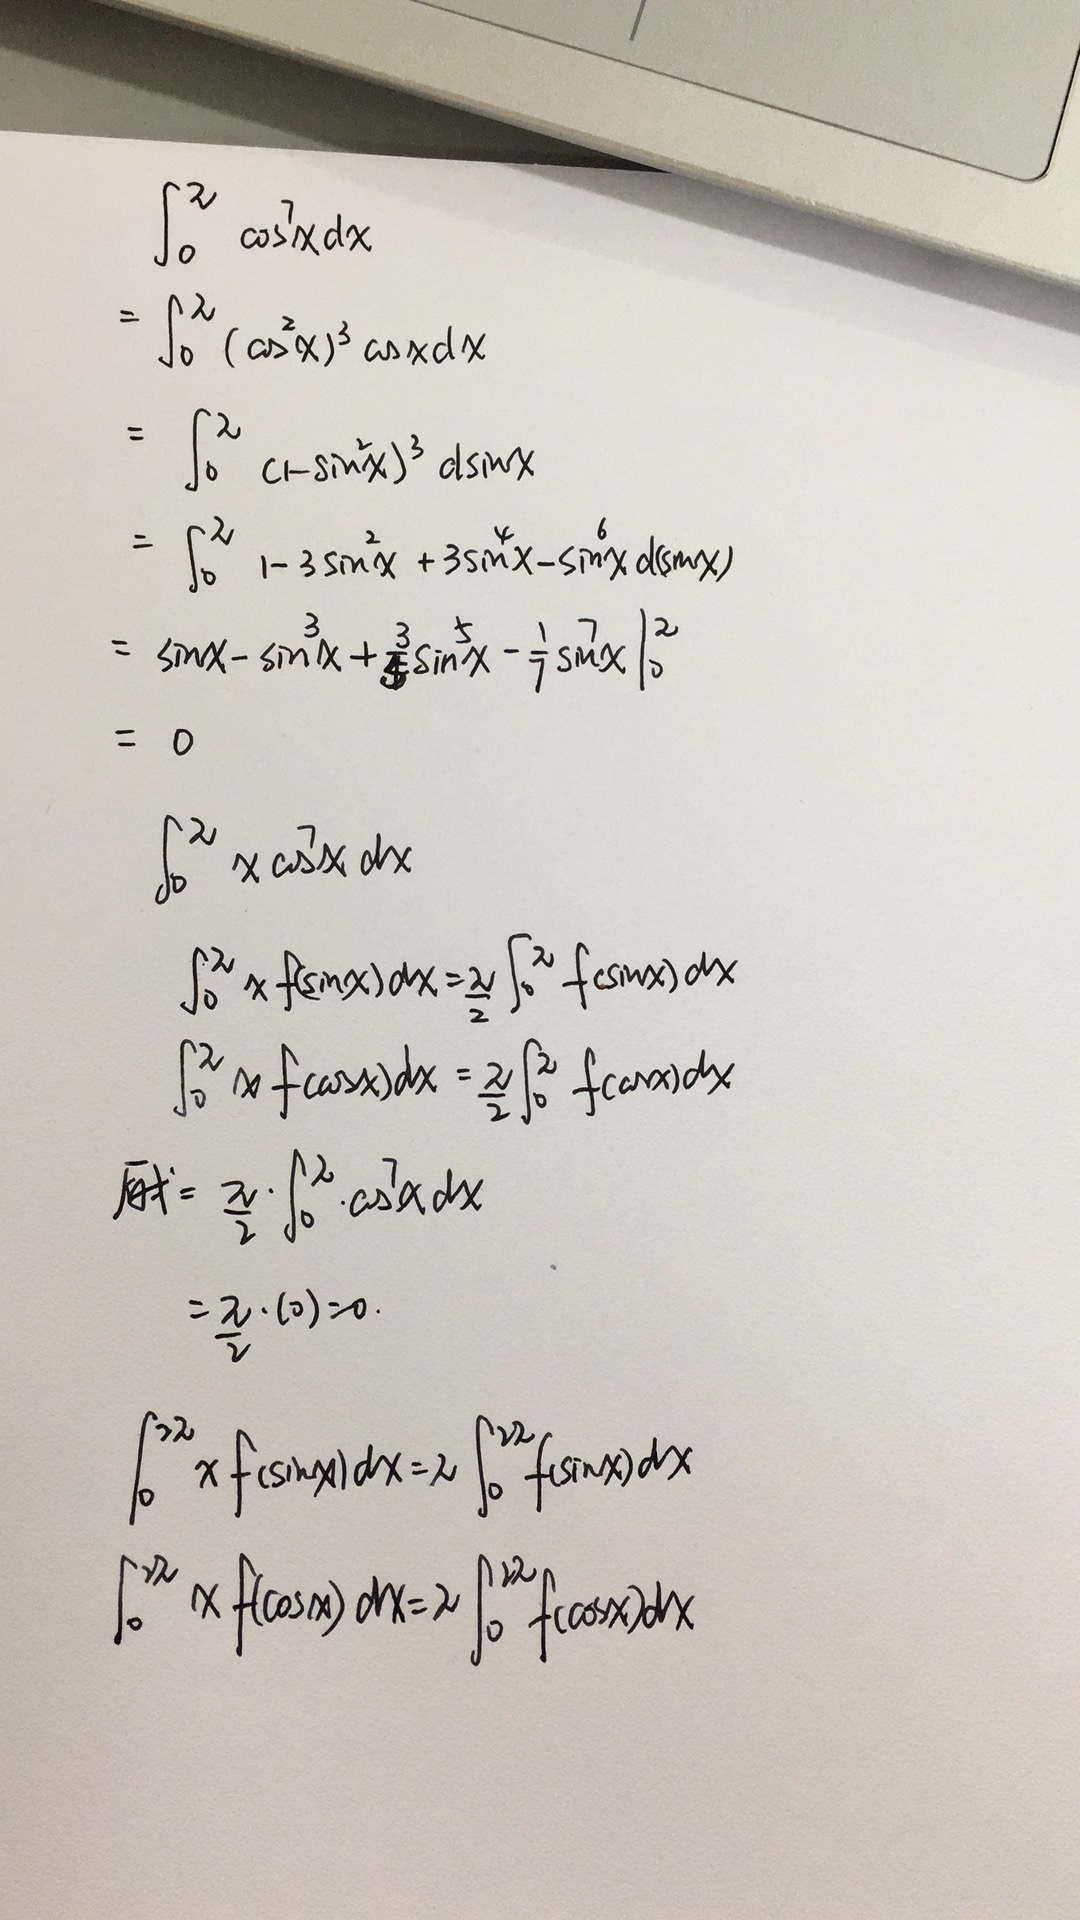 ∫₀^π cos⁷x dx
= ∫₀^π (cos²x)³ cosx dx
= ∫₀^π (1-sin²x)³ dsinx
= ∫₀^π 1-3sin²x+3sin⁴x-sin⁶x d(sinx)
= sinx-sin³x+3/5 sin⁵x-1/7 sin⁷x |₀^π
= 0
∫₀^π x cos⁷x dx
∫₀^π x f(sinx)dx=π/2 ∫₀^π f(sinx)dx
∫₀^π x f(cosx)dx=π/2 ∫₀^π f(cosx)dx
原式=π/2·∫₀^π·cos⁷x dx
=π/2·(0)=0.
∫₀^2π x f(sinx)dx=π ∫₀^2π f(sinx)dx
∫₀^2π x f(cosx)dx=π ∫₀^2π f(cosx)dx